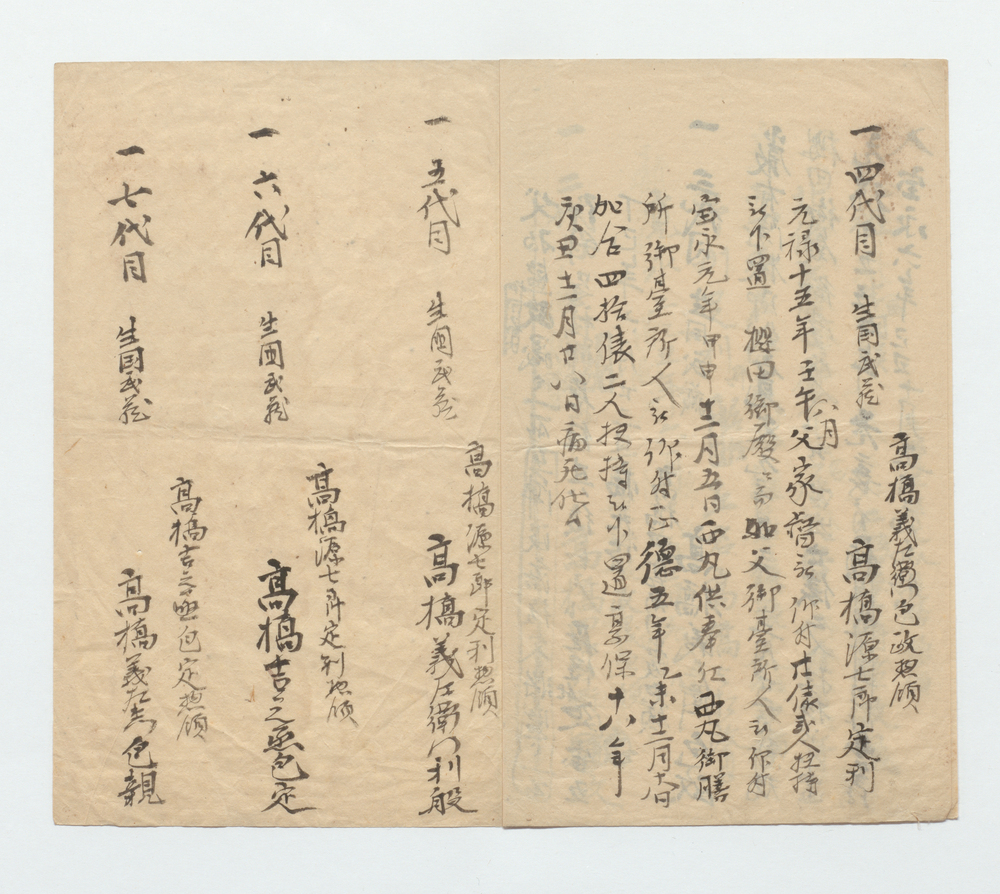 高橋義左衛門包政惣領
一 四代目 生国武蔵 高橋源七郎定利
元禄十五年壬午八月父家督被 仰付廿俵弐人扶持
被下置 櫻田御殿ニ而如父御臺所人被 仰付
宝永元年甲申十二月五日西丸供奉仕西丸御膳
所御臺所人被 仰付正徳五年乙未十二月十八日
加合四拾俵二人扶持被下置享保十八年
癸丑十二月廿八日病死仕候
高橋源七郎定利惣領
一 五代目 生国武蔵 高橋義左衛門利般
高橋源七郎定利惣領
一 六代目 生国武蔵 高橋吉之丞包定
高橋吉之丞包定惣領
一 七代目 生国武蔵 高橋義左衛門包親